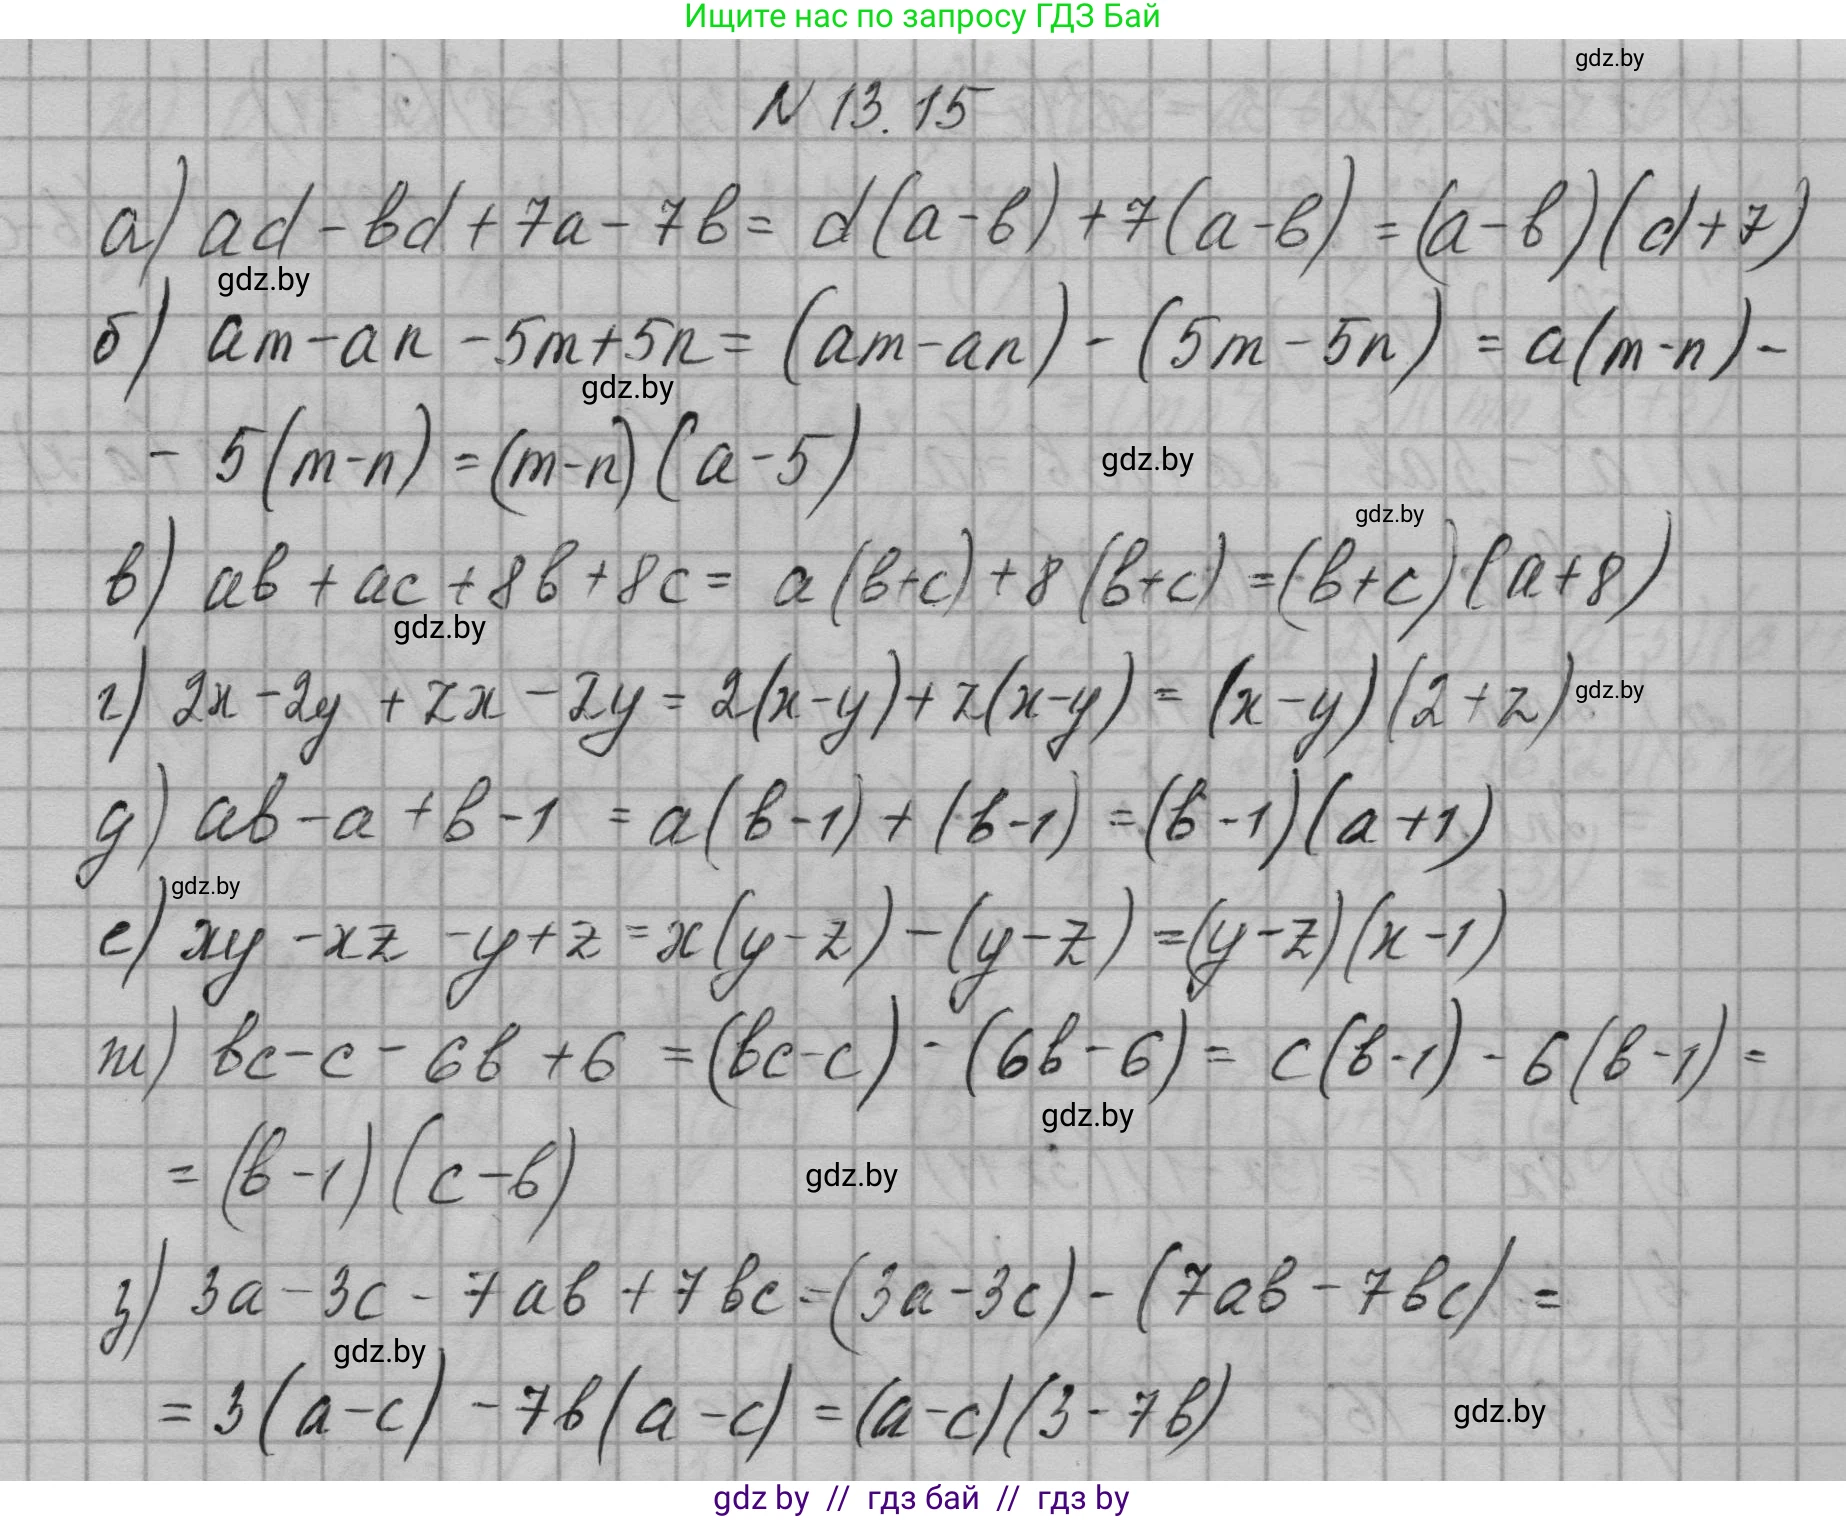 Ищите нас по запросу ГДЗ Бай
gdz.by
N 13.15
а) ad - bd + 7a - 7b = d(a-b) + 7(a-b) = (a-b)(d+7)
gdz.by
б) am - an - 5m + 5n = (am - an) - (5m - 5n) = a(m-n) -
gdz.by
- 5(m-n) = (m-n)(a-5)
gdz.by
gdz.by
в) ab + ac + 8b + 8c = a(b+c) + 8(b+c) = (b+c)(a+8)
gdz.by
г) 2x - 2y + zx - zy = 2(x-y) + z(x-y) = (x-y)(2+z)
gdz.by
д) ab - a + b - 1 = a(b-1) + (b-1) = (b-1)(a+1)
gdz.by
е) xy - xz - y + z = x(y-z) - (y-z) = (y-z)(x-1)
ж) bc - c - 6b + 6 = (bc-c) - (6b-6) = c(b-1) - 6(b-1) =
gdz.by
= (b-1)(c-b)
gdz.by
з) 3a - 3c - 7ab + 7bc = (3a-3c) - (7ab - 7bc) =
gdz.by
= 3(a-c) - 7b(a-c) = (a-c)(3-7b)
gdz.by
gdz by // гдз бай // гдз by